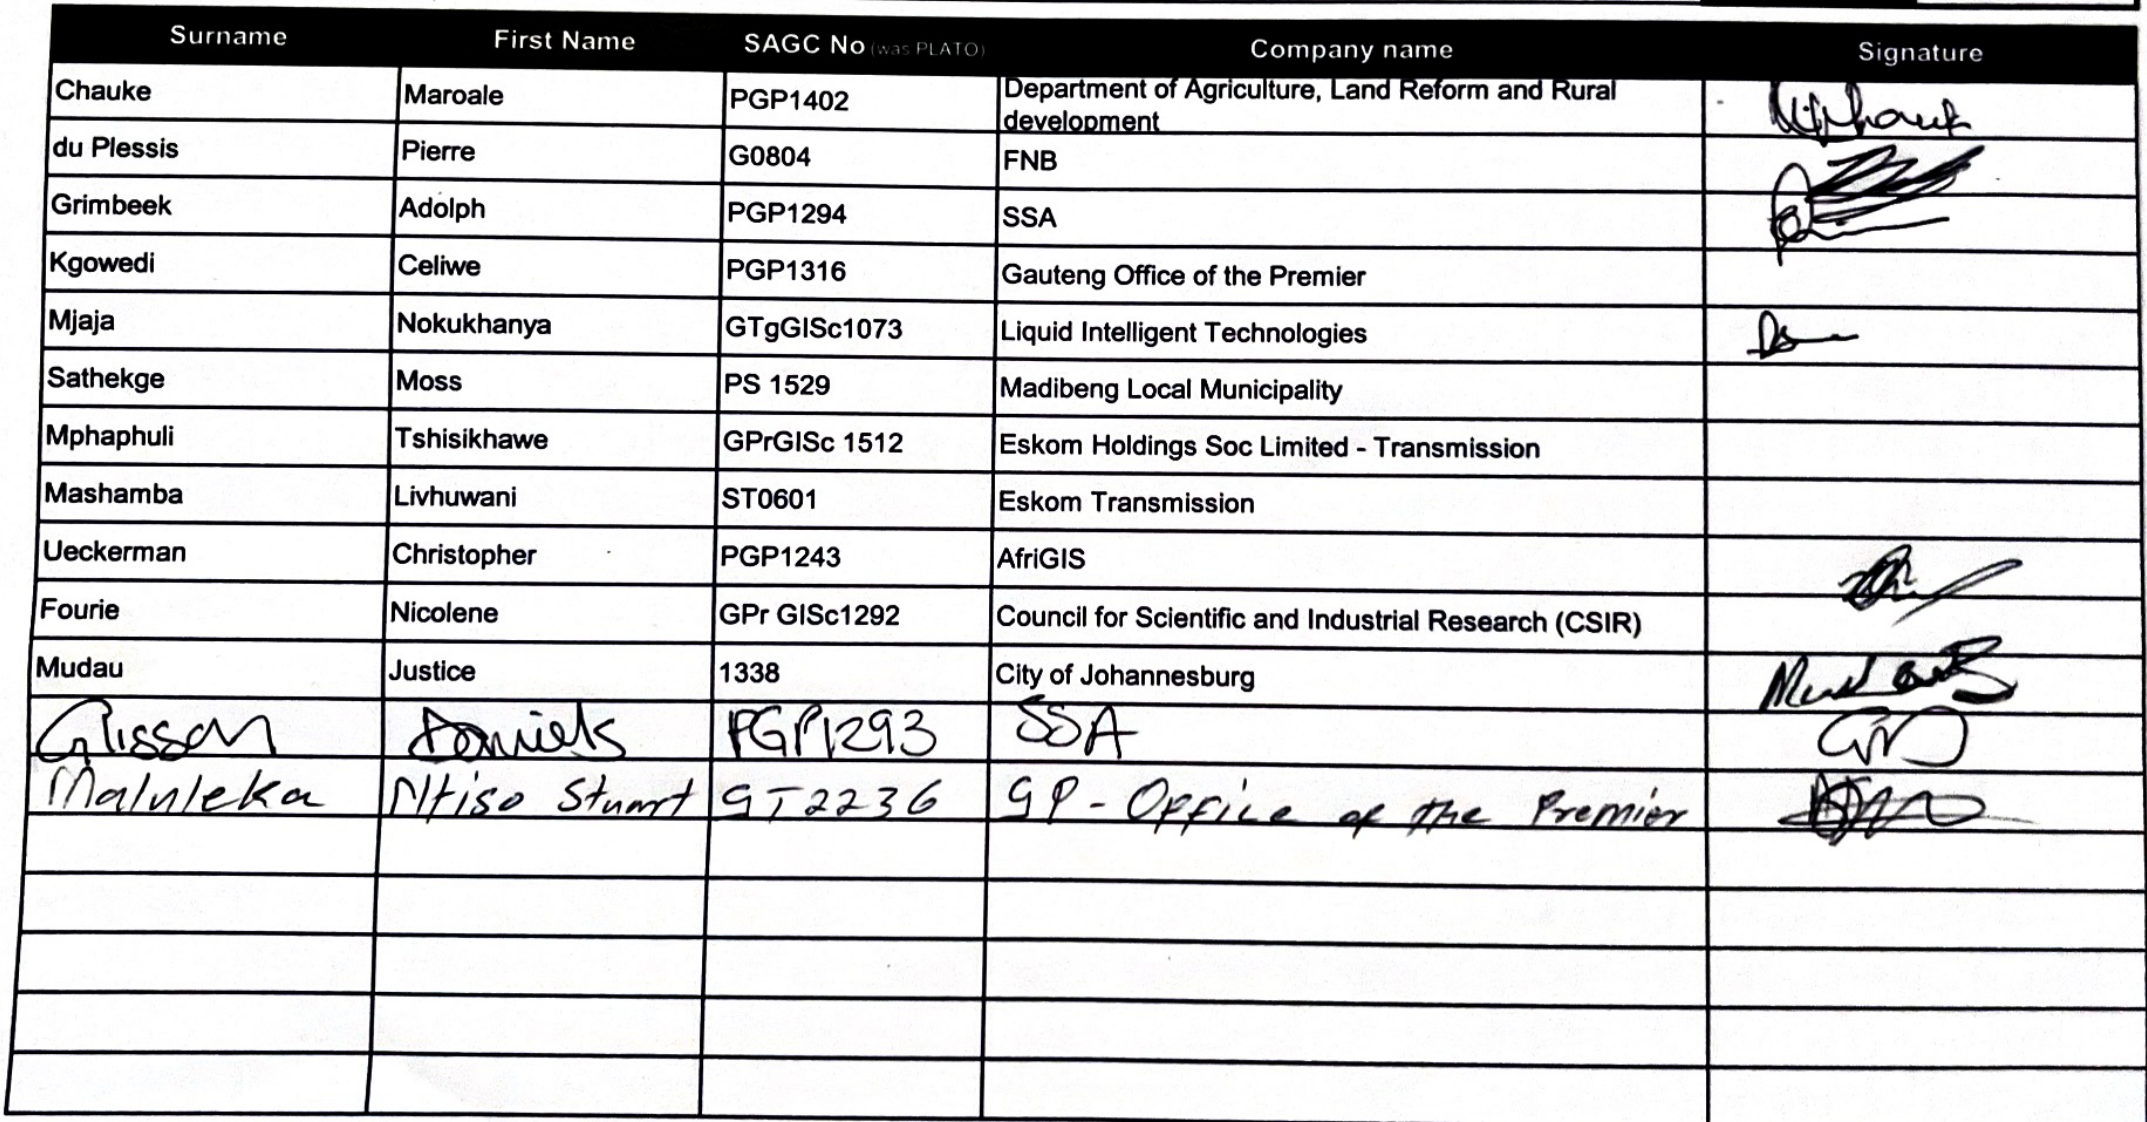 Surname First Name SAGC No (was PLATO) Company name Signature
Chauke Maroale PGP1402 Department of Agriculture, Land Reform and Rural
development
du Plessis Pierre G0804 FNB
Grimbeek Adolph PGP1294 SSA
Kgowedi Celiwe PGP1316 Gauteng Office of the Premier
Mjaja Nokukhanya GTgGISc1073 Liquid Intelligent Technologies
Sathekge Moss PS 1529 Madibeng Local Municipality
Mphaphuli Tshisikhawe GPrGISc 1512 Eskom Holdings Soc Limited - Transmission
Mashamba Livhuwani ST0601 Eskom Transmission
Ueckerman Christopher PGP1243 AfriGIS
Fourie Nicolene GPr GISc1292 Council for Scientific and Industrial Research (CSIR)
Mudau Justice 1338 City of Johannesburg
Glisson Daniels PGP1293 SSA
Maluleka Ntiso Stuart GT2236 GP - Office of the Premier